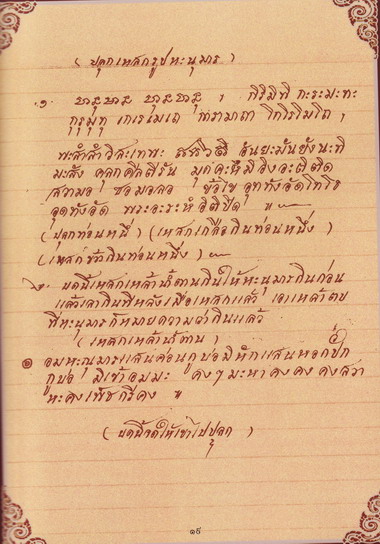 ( ปลุกเสกรูปหะนุมาร )
๑. หานุหาน หานุหานุ , กิริมิทิ กะระมะทะ
กุรุมุทุ เกเรเมเถ กรามาถา โกโรโมโถ ,
พะสำสำวิสะเทพะ อันยะมันยังนะที
มะสัง คลุกคีกลีรัน มุกคะหิมิอิงอะติติด
สวามอ
อุดทังอัด พระอะระหํ อิติปิด ฯ
( ปลุกท่อนหนึ่ ) ( เสกเกลือกินท่อนหนึ่ง )
( เสกข้าวกินท่อนหนึ่ง )
๒. บดนี้เสกเหล้าน้ำตานกินให้หะนุมารกินก่อน
แล้วเรากินทีหลังเมื่อเสกแล้ว เอาเหล้าตบ
ที่หะนุมารก็หมายความว่ากินแล้ว
( เสกเหล้าน้ำตาน )
๑ อมหะณุมารแสนคอนกูบ่อมิหักแสนหอกปัก
กูบ่อ มิเข้าอมมะ คงๆ มะหา คงคง คงสวา
หะคงเพ็ชกรีคง ฯ
( บดนี้จดให้เขาไปปลุก )
๑๙